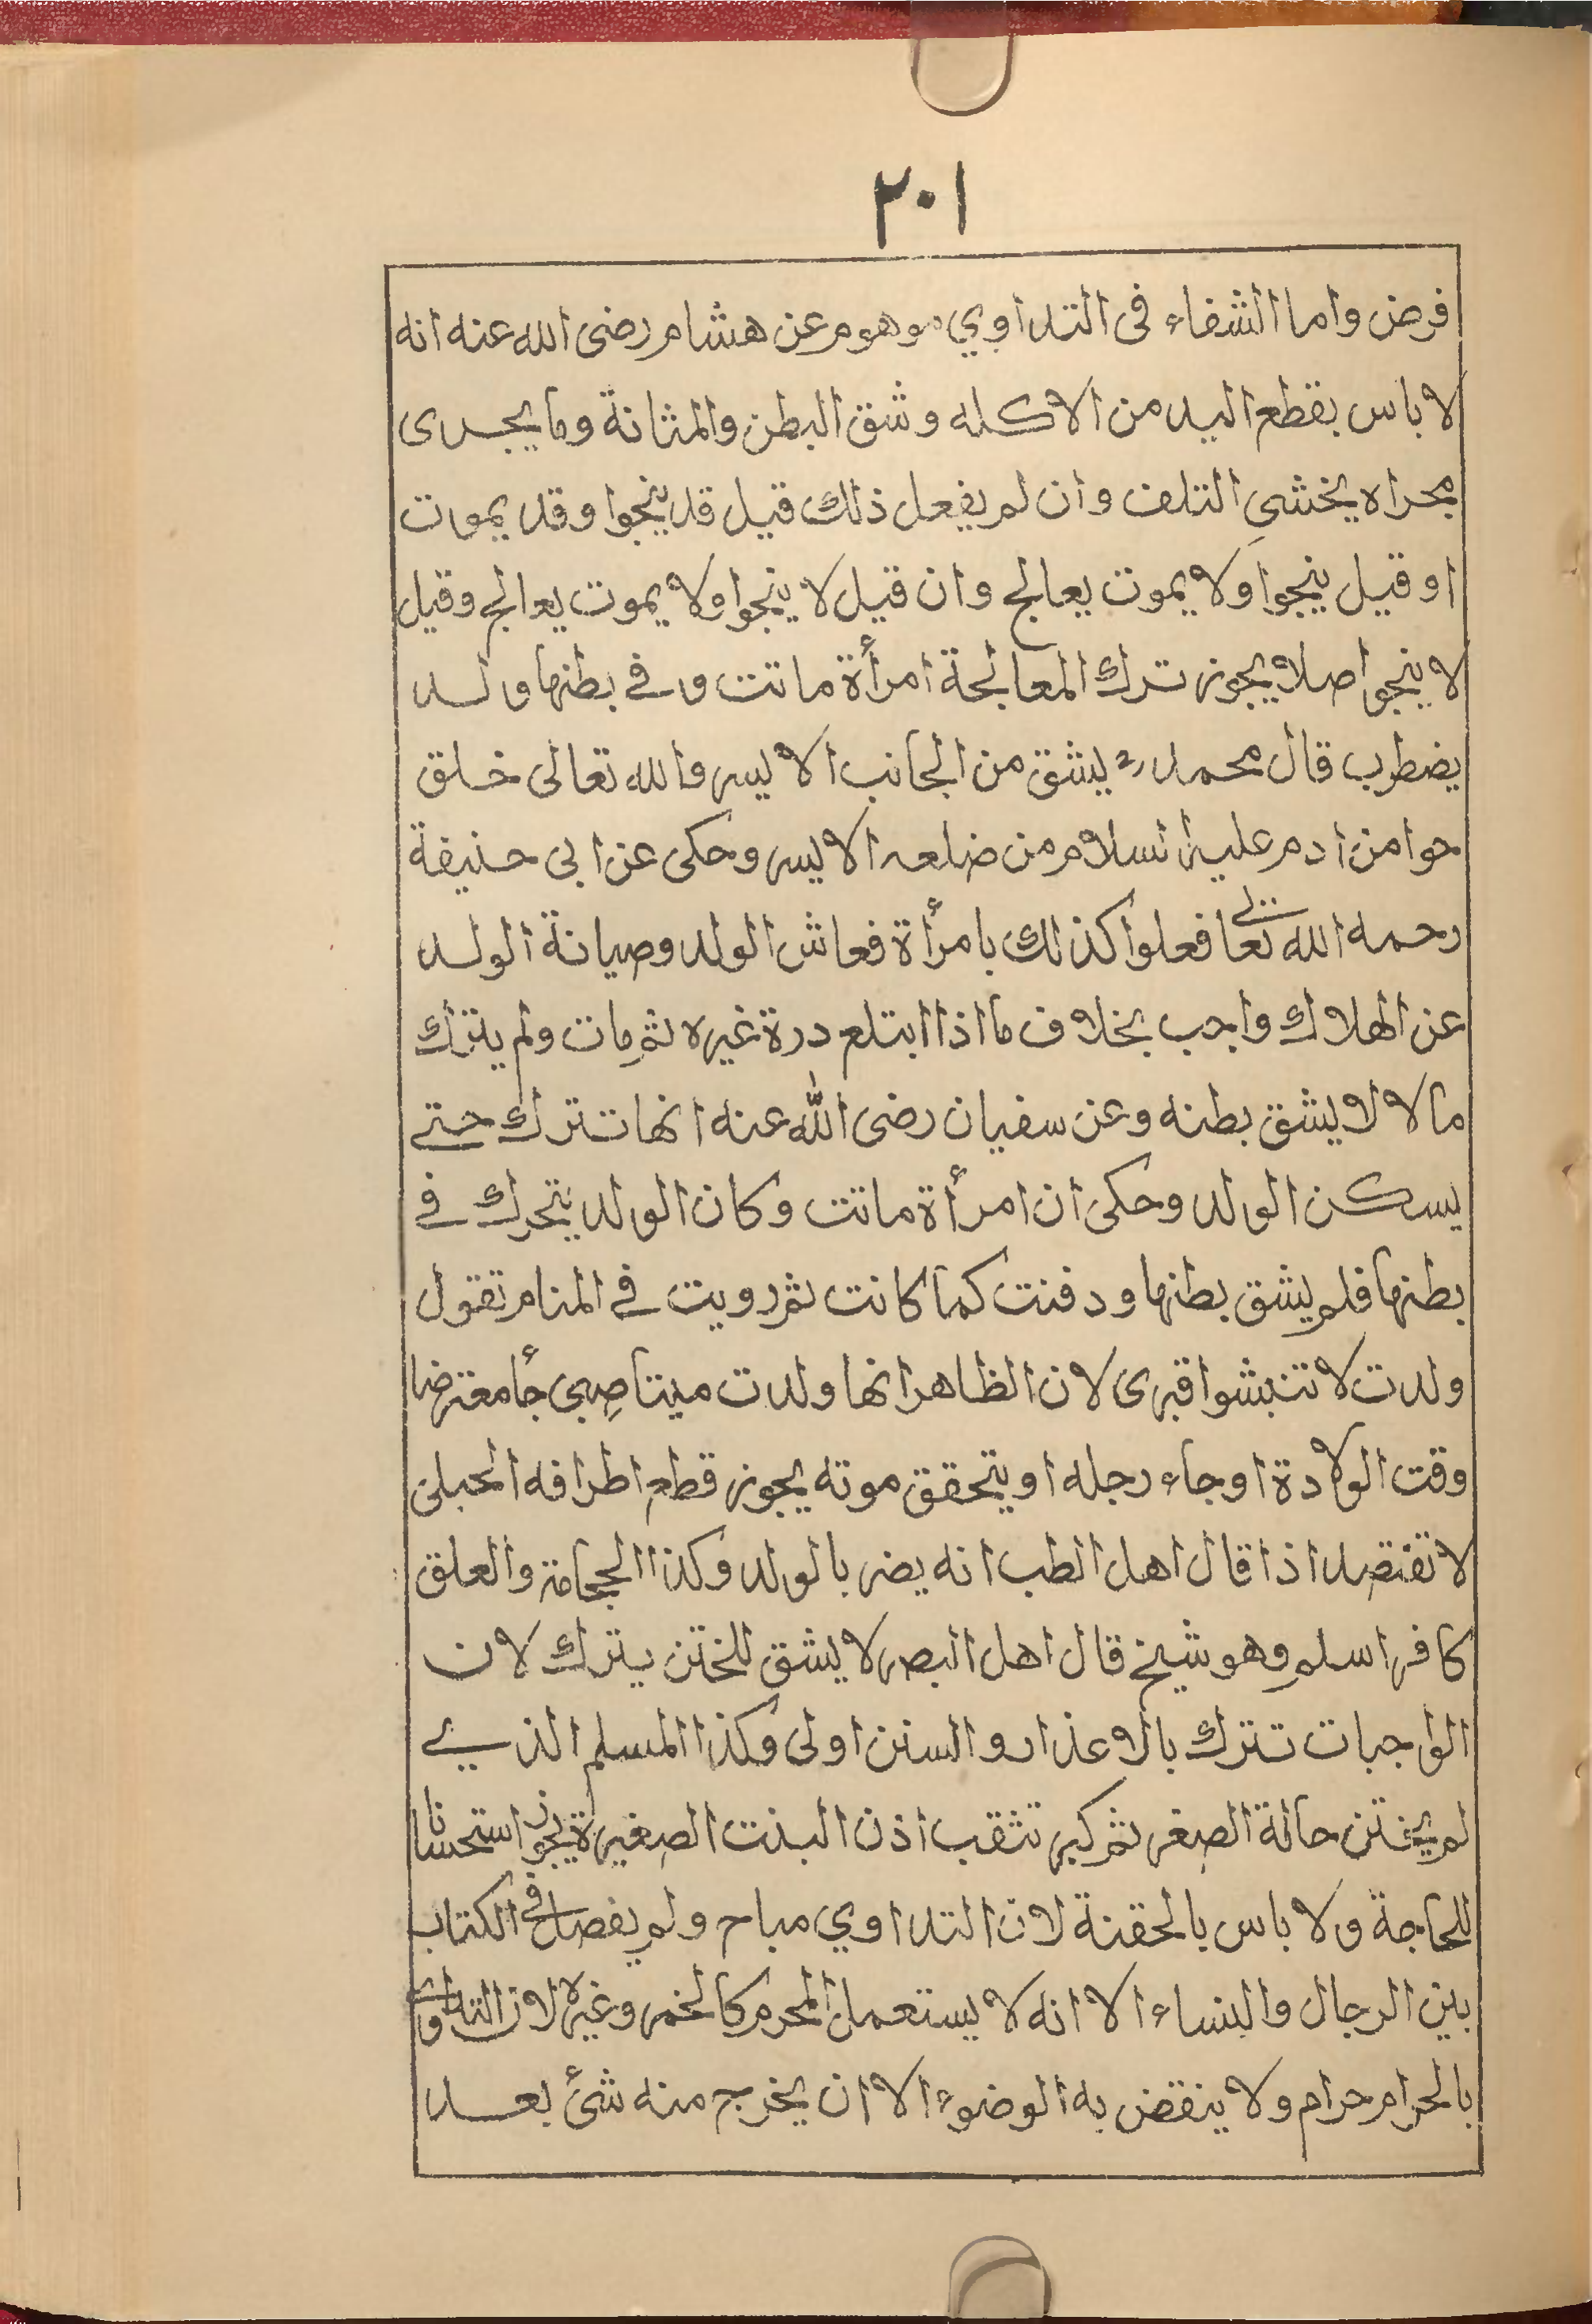 ٢٠١
فرض واما الشفاء فى التداوي موهوم عن هشام رضى الله عنه انه
لا باس بقطع اليد من الاكله وشق البطن والمثانة وما يجرى
مجراه يخشي التلف وان لم يفعل ذلك قيل قد ينجوا وقد يموت
او قيل ينجوا ولا يموت يعالج وان قيل لا ينجوا ولا يموت يعالج وقيل
لا ينجوا اصلا يجوز ترك المعالجة امرأة ماتت وفي بطنها ولد
يضطرب قال محمد رح يشق من الجانب الايسر والله تعالى خلق
حوا من ادم عليه السلام من ضلعه الايسر وحكى عن ابى حنيفة
رحمه الله تعالى فعلوا كذلك بامرأة فعاش الولد وصيانة الولد
عن الهلاك واجب بخلاف ما اذا ابتلع درة غيره ثم مات ولم يترك
مالا لا يشق بطنه وعن سفيان رضى الله عنه انها تترك حتى
يسكن الولد وحكى ان امرأة ماتت وكان الولد يتحرك في
بطنها فلم يشق بطنها ودفنت كما كانت ثم رويت في المنام تقول
ولدت لا تنبشوا قبرى لان الظاهر انها ولدت ميتا صبى جأ معترضا
وقت الولادة او جاء رجله او يتحقق موته يجوز قطع اطرافه الحبلى
لا تفتصد اذا قال اهل الطب انه يضر بالولد وكذا الحجامة والعلق
كافر اسلم وهو شيخ قال اهل البصر لا يشق للختن يترك لان
الواجبات تترك بالاعذار والسنن اولى وكذا المسلم الذي
لم يختتن حالة الصغر ثم كبر تثقب اذن البنت الصغيرة يجوز استحسانا
للحاجة ولا باس بالحقنة لان التداوي مباح ولم يفصل في الكتاب
بين الرجال والنساء الا انه لا يستعمل المحرم كالخمر وغيره لان التداوي
بالحرام حرام ولا ينقض به الوضوء الا ان يخرج منه شئ بعد